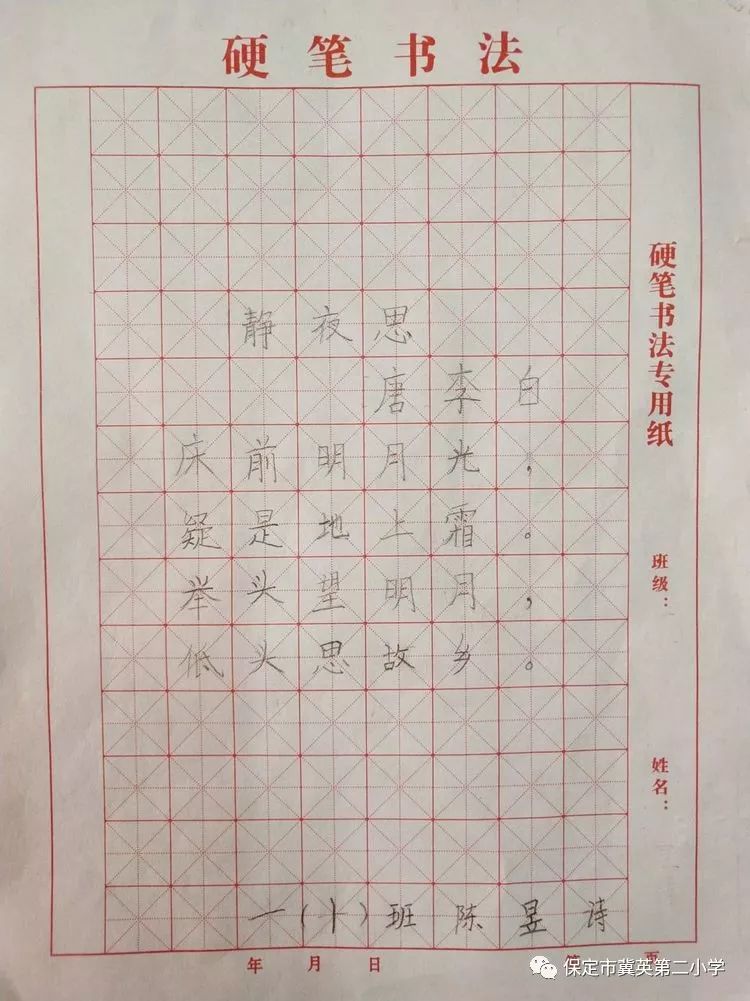 硬笔书法
静夜思
唐李白
床前明月光，
疑是地上霜。
举头望明月，
低头思故乡。
一(十)班陈昱诗
硬笔书法专用纸
班级：
姓名：
年月日
页
保定市冀英第二小学